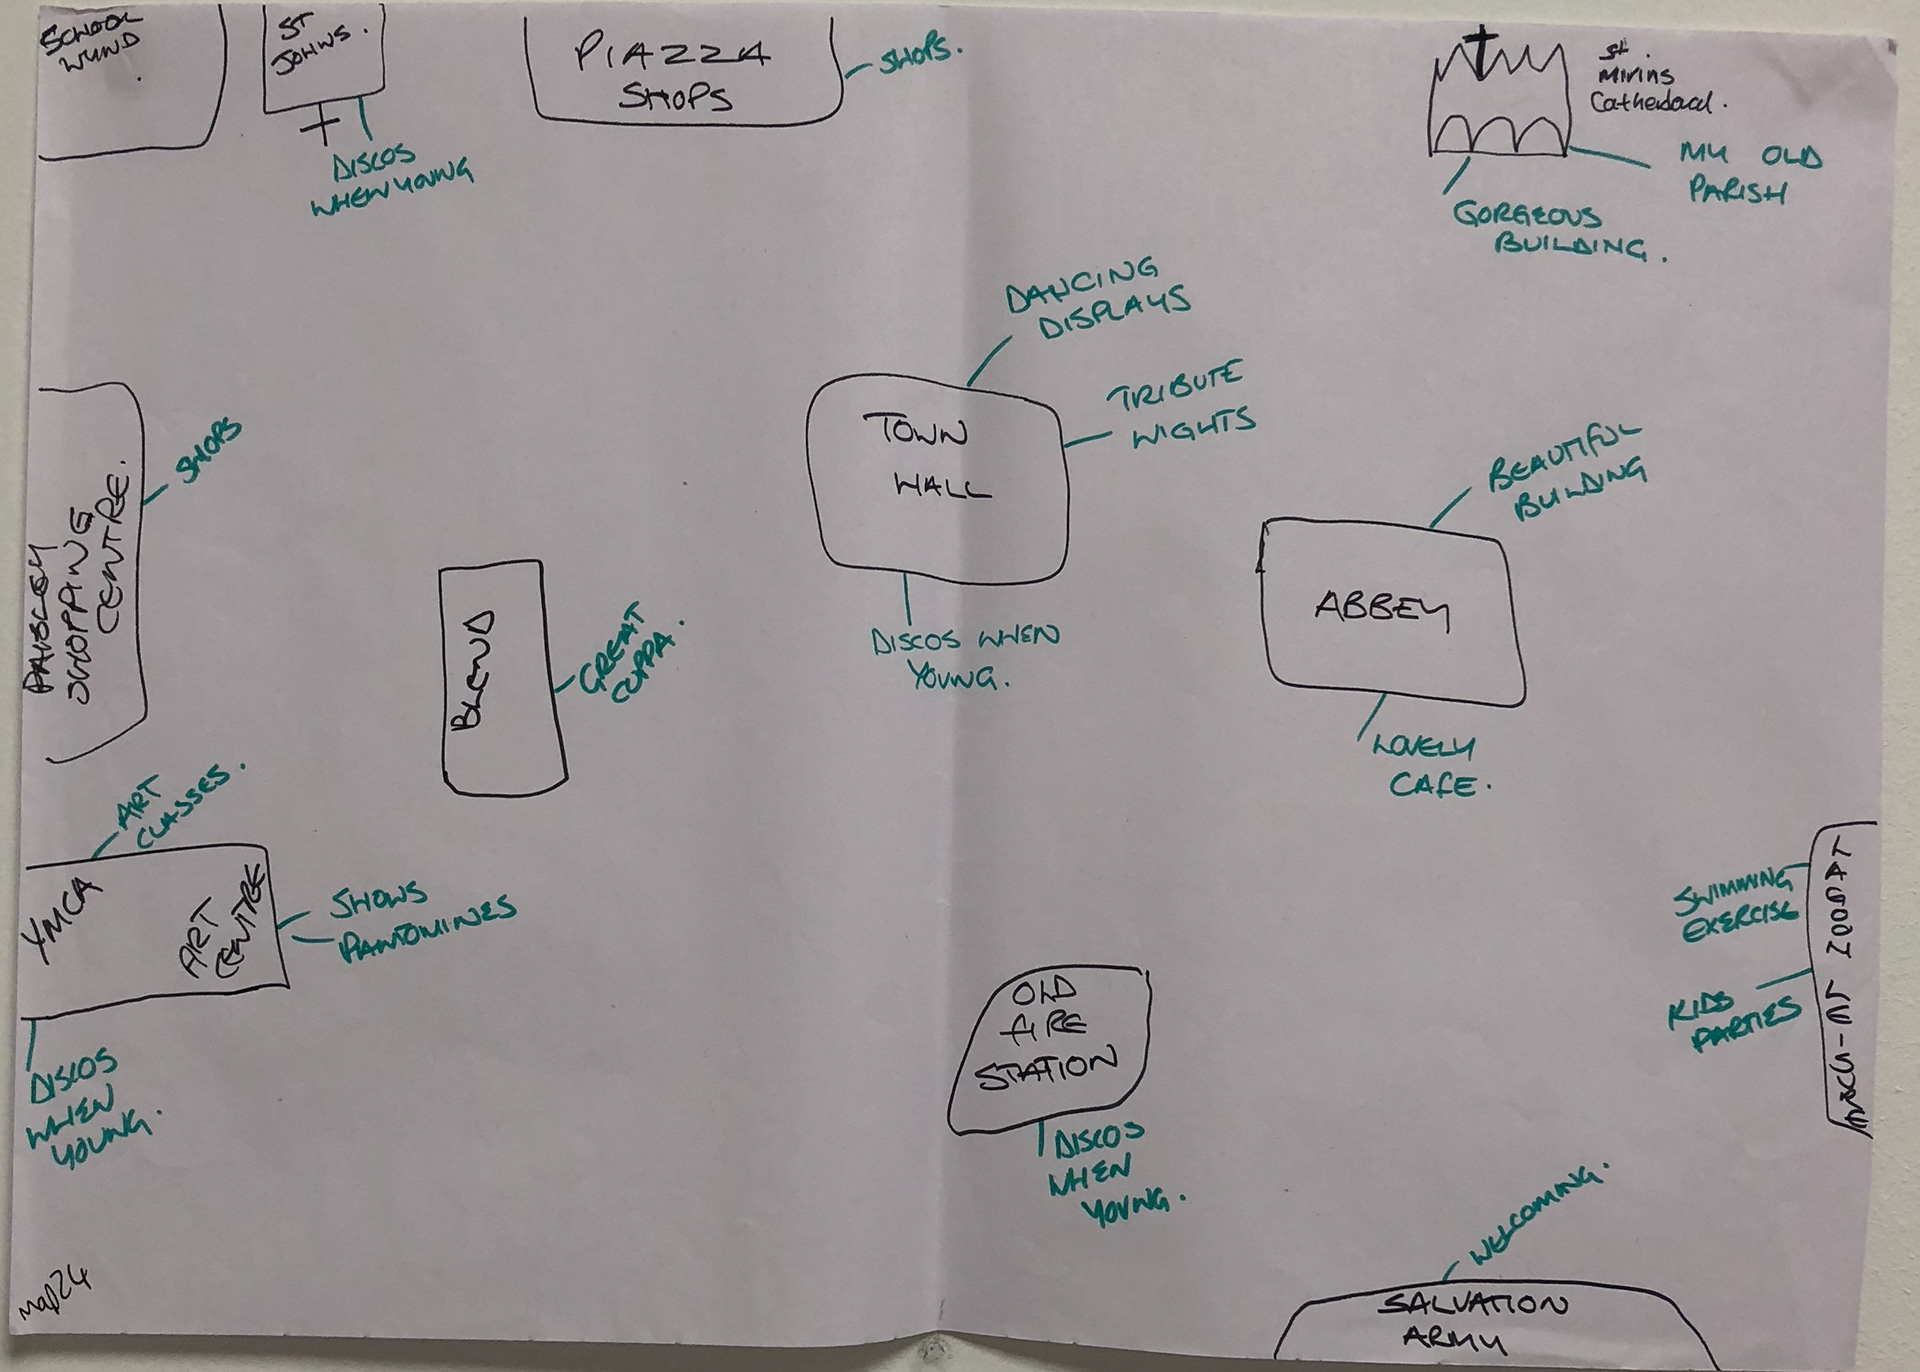 SCHOOL
WYND
.
ST
JOHNS.
DISCOS
WHEN YOUNG
PIAZZA
SHOPS
SHOPS.
St.
Mirins
Cathedacl.
MY OLD
PARISH
GORGEOUS
BUILDING.
DANCING
DISPLAYS
TRIBUTE
NIGHTS
TOWN
HALL
DISCOS WHEN
YOUNG.
SHOPS
PAISLEY
SHOPPING
CENTRE.
BLEND
GREAT
CUPPA.
BEAUTIFUL
BUILDING
ABBEY
LOVELY
CAFE.
ART
CLASSES.
YMCA
ART
CENTRE
SHOWS
PANTOMINES
DISCOS
WHEN
YOUNG.
OLD
FIRE
STATION
DISCOS
WHEN
YOUNG.
SWIMMING
EXERCISE
KIDS
PARTIES
LAGOON
WELCOMING.
SALVATION
ARMY
Map24